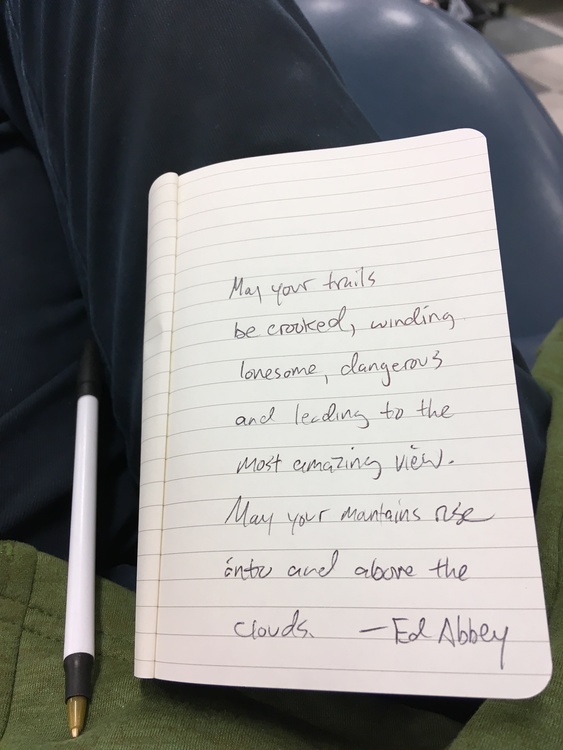 May your trails
be crooked, winding
lonesome, dangerous
and leading to the
most amazing view.
May your mantains rise
into and above the
clouds. —Ed Abbey